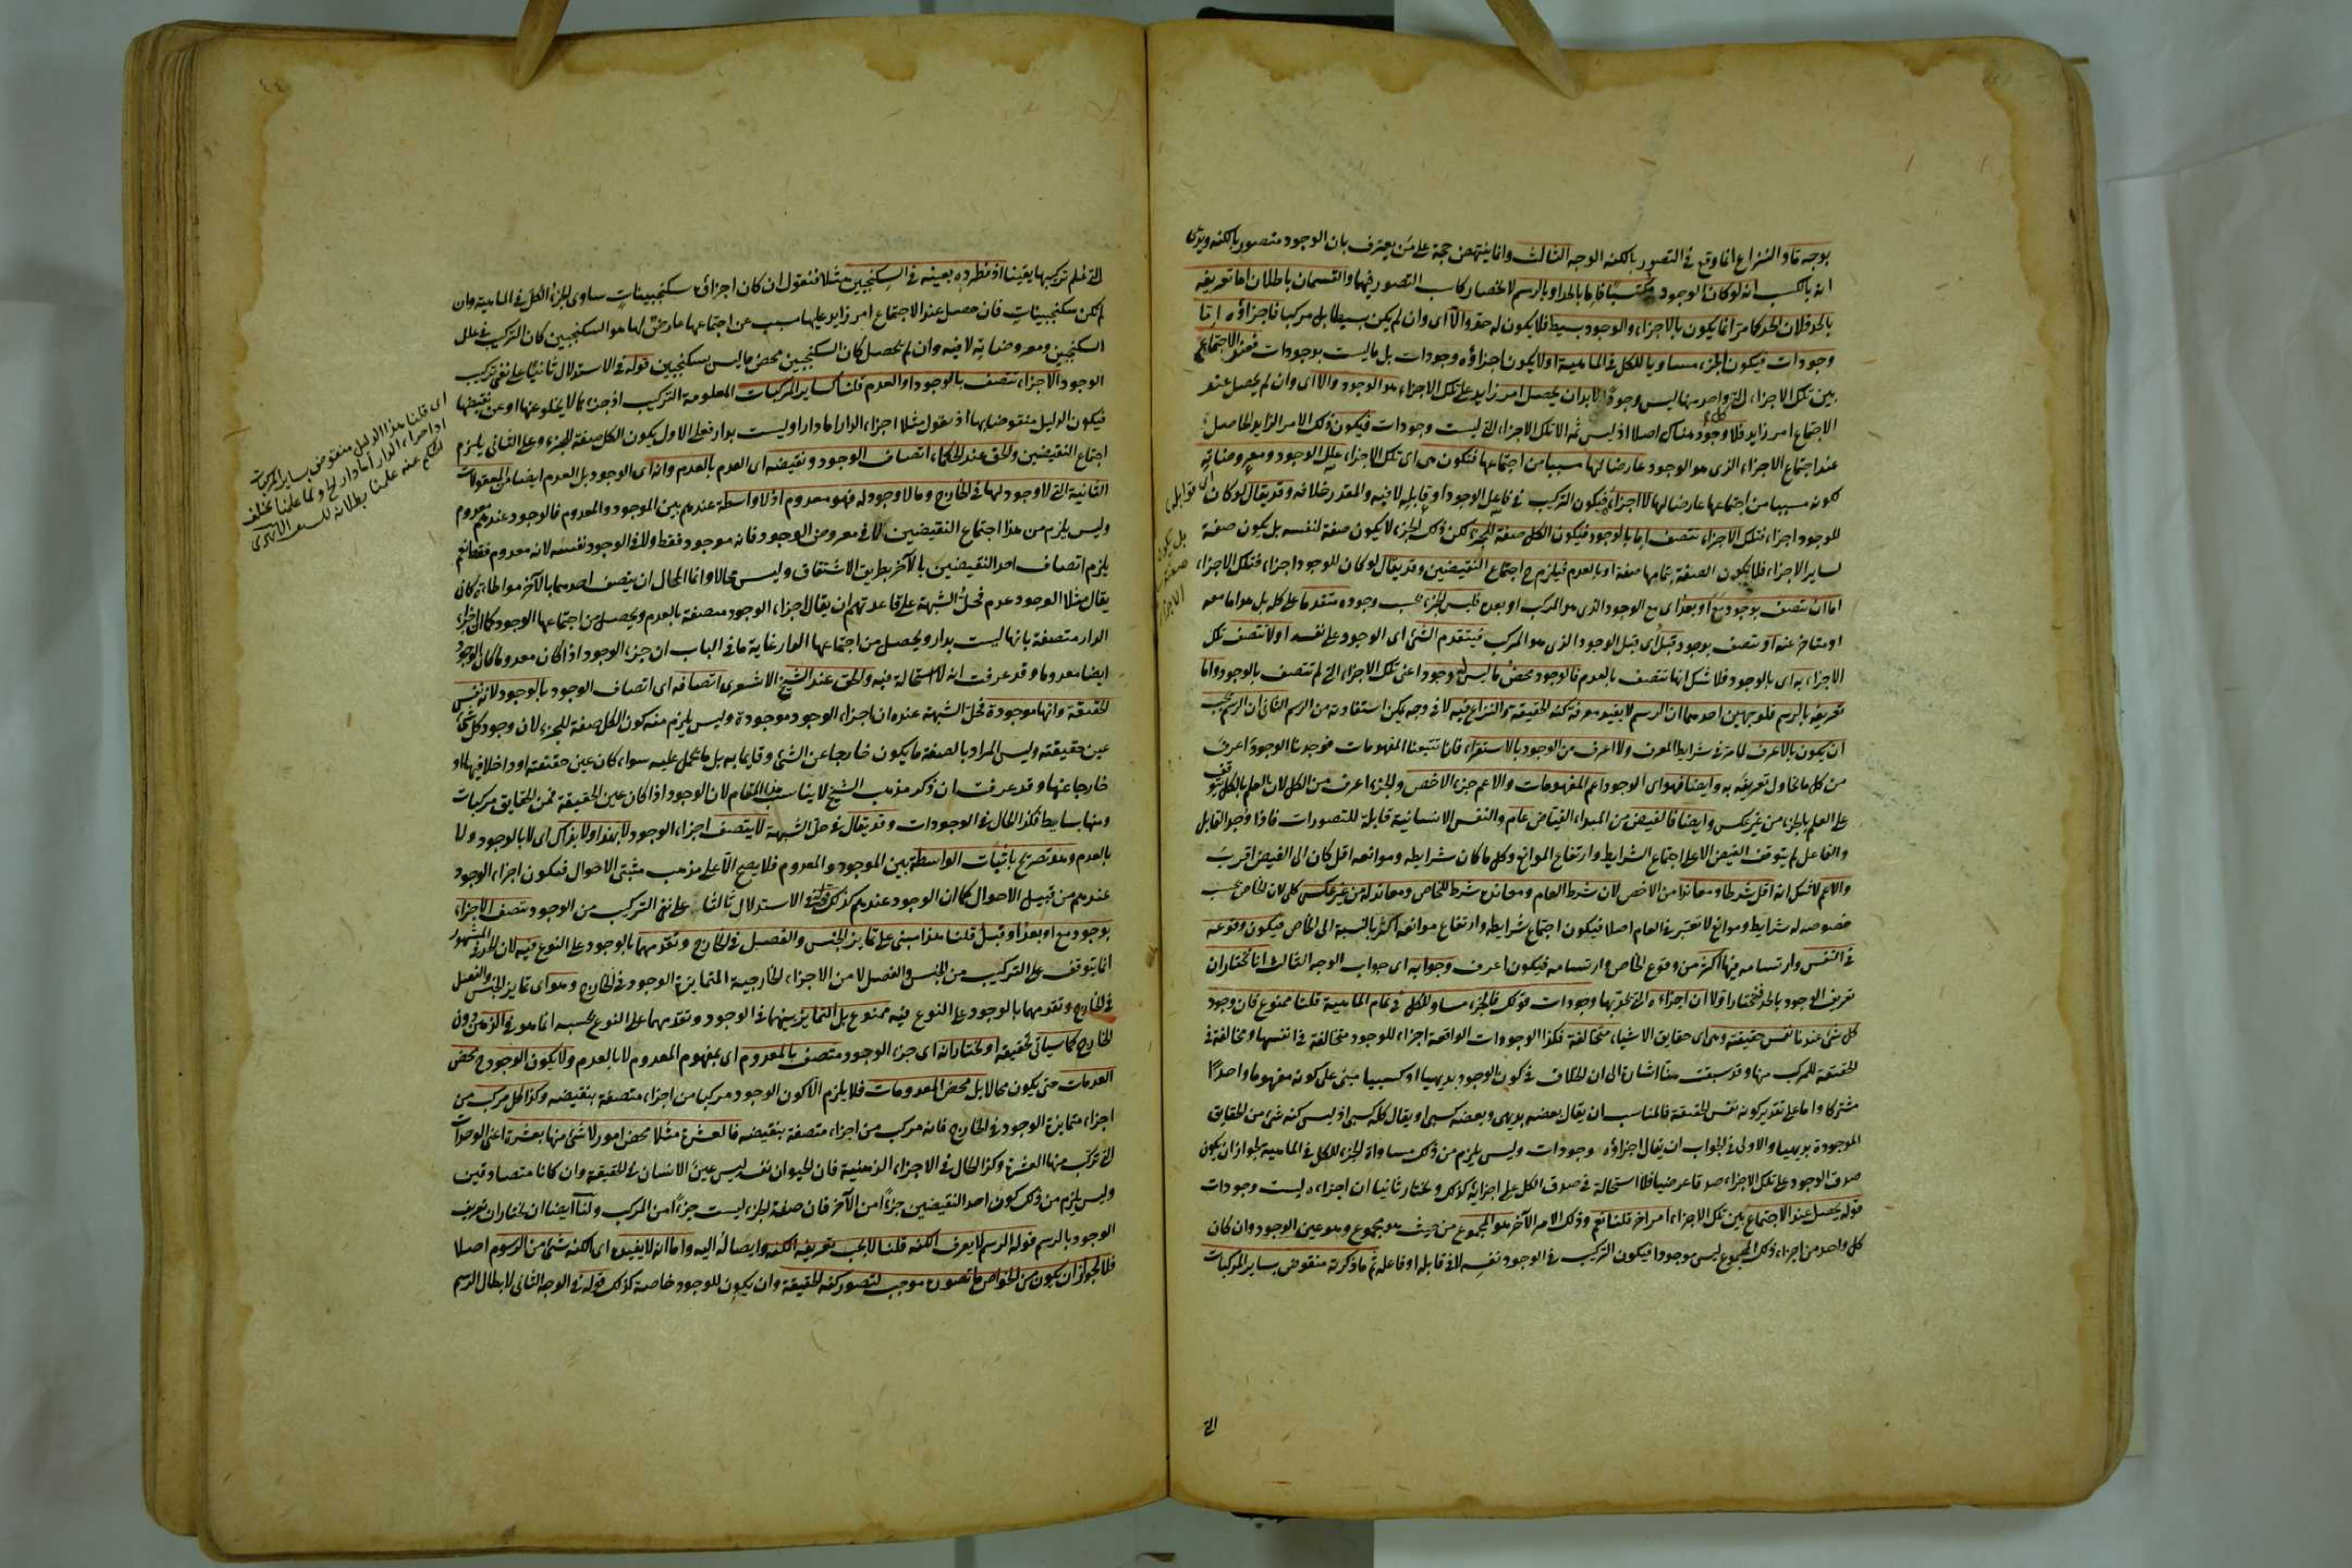 بوجه ما والنزاع انما وقع في التصور بالكنه الوجه الثالث وانما ينتهض حجة على من يعترف بان الوجود متصور بالكنه ويدعى
انه بالكسب انه لو كان الوجود مكتسبا فاما بالحد او بالرسم لانحصار كاسب التصور فيهما والقسمان باطلان اما تعريفه
بالحد فلان الحد كما مر انما يكون بالاجزاء والوجود بسيط فلا يكون له حد والا اى وان لم يكن بسيطا بل مركبا فاجزاؤه اما
وجودات فيكون الجزء مساويا للكل في الماهية اولا يكون اجزاؤه وجودات بل ما ليست بوجودات فعند الاجتماع
بين تلك الاجزاء التى كل واحد منها ليس وجودا لابد ان يحصل امر زايد على تلك الاجزاء هو الوجود والا اى وان لم يحصل عند
الاجتماع امر زايد فلا وجود هناك اصلا اذ ليس ثمه الا تلك الاجزاء التى ليست وجودات فيكون ذلك الامر الزايد الحاصل
عند اجتماع الاجزاء الذى هو الوجود عارضا لها مسببا من اجتماعها فتكون هى اى تلك الاجزاء علل الوجود ومعروضاته
لكونه مسببا من اجتماعها عارضا لها لا اجزاؤه فيكون التركيب في فاعل الوجود او قابله لا فيه والمقدر خلافه وقد يقال لو كان
للوجود اجزاء فتلك الاجزاء تتصف اما بالوجود فيكون الكل صفة للجزء لكن ذلك الجزء لا يكون صفة لنفسه بل يكون صفة
لساير الاجزاء فلا يكون الصفة بتمامها صفة او بالعدم فيلزم ح اجتماع النقيضين وقد يقال لو كان للوجود اجزاء فتلك الاجزاء
اما ان تتصف بوجود مع او بعد اى مع الوجود الذى هو المركب او بعده فليس الجزء بحسب وجوده متقدما على كله بل هو اما معه
او متاخر عنه او تتصف بوجود قبل اى قبل الوجود الذى هو المركب فيتقدم الشئ اى الوجود على نفسه اولا تتصف تلك
الاجزاء به اى بالوجود فلا شك انها تتصف بالعدم فالوجود محض ما ليس له وجود اعنى تلك الاجزاء التى لم تتصف بالوجود واما
تعريفه بالرسم فلوجهين احدهما ان الرسم لا يفيد معرفة كنه الحقيقة والنزاع فيه لا في وجه يمكن استفادته من الرسم الثانى ان الرسم يجب
ان يكون بالاعرف لما مر في شرايط المعرف ولا اعرف من الوجود بالاستقراء فانا تتبعنا المفهومات فوجدنا الوجود اعرف
من كل ما نحاول تعريفه به وايضا فهو اى الوجود اعم المفهومات والاعم جزء الاخص والجزء اعرف من الكل لان العلم بالكل يتوقف
على العلم بالجزء من غير عكس وايضا فالفيض من المبداء الفياض عام والنفس الانسانية قابلة للتصورات فاذا وجد القابل
والفاعل لم يتوقف الفيض الا على اجتماع الشرايط وارتفاع الموانع وكل ما كان شرايطه وموانعه اقل كان الى الفيض اقرب
والاعم لا شك انه اقل شرطا ومعاندا من الاخص لان شرط العام ومعانده شرط للخاص ومعاند له من غير عكس كلى لان الخاص بحسب
خصوصه له شرايط وموانع لا تعتبر في العام اصلا فيكون اجتماع شرايطه وارتفاع موانعه اكثر بالنسبة الى الخاص فيكون وقوعه
في النفس وارتسامه فيها اكثر من وقوع الخاص وارتسامه فيكون اعرف وجوابه اى جواب الوجه الثالث انا نختار ان
تعريف الوجود بالحد فنختار اولا ان اجزاءه التى يحد بها وجودات قولك فالجزء مساو للكل في تمام الماهية قلنا ممنوع فان وجود
كل شئ عندنا نفس حقيقته وهى اى حقايق الاشياء متخالفة فكذا الوجودات الواقعة اجزاء للوجود متخالفة في انفسها ومخالفة في
الحقيقة للمركب منها وقد سبقت منا اشارة الى ان الخلاف في كون الوجود بديهيا او كسبيا مبنى على كونه مفهوما واحدا
مشتركا واما على تقدير كونه نفس الحقيقة فالمناسب ان يقال بعضه بديهى وبعضه كسبى او يقال كله كسبى اذ ليس كنه شئ من الحقايق
الموجودة بديهيا والاولى في الجواب ان يقال اجزاؤه وجودات وليس يلزم من ذلك مساواة الجزء للكل في الماهية لجواز ان يكون
صدق الوجود على تلك الاجزاء صدقا عرضيا فلا استحالة في صدق الكل على اجزائه كذلك ونختار ثانيا ان اجزاءه ليست وجودات
قوله يحصل عند الاجتماع بين تلك الاجزاء امر اخر قلنا نعم وذلك الامر الآخر هو المجموع من حيث هو مجموع وهو عين الوجود وان كان
كل واحد من اجزاء ذلك المجموع ليس موجودا فيكون التركيب في الوجود نفسه لا في قابله او فاعله ثم ما ذكرته منقوض بساير المركبات
اى قوابل
بل يكون
صفة
الاجزاء
التى
٤٤
التى نعلم تركيبها يقينا اذ نطرده بعينه في السكنجبين مثلا فنقول ان كان اجزاؤه سكنجبينات ساوى الجزء الكل في الماهية وان
لم يكن سكنجبينات فان حصل عند الاجتماع امر زايد عليها مسبب عن اجتماعها عارض لها هو السكنجبين كان التركيب في علل
السكنجبين ومعروضاته لا فيه وان لم يحصل كان السكنجبين محض ما ليس بسكنجبين قوله في الاستدلال ثانيا على نفى تركيب
الوجود الاجزاء تتصف بالوجود او العدم قلنا كساير المركبات المعلومة التركيب اذ جزء ما لا يخلو عنها او عن نقيضها
فيكون الدليل منقوضا بها اذ نقول مثلا اجزاء الدار اما دار او ليست بدار فعلى الاول يكون الكل صفة للجزء وعلى الثانى يلزم
اجتماع النقيضين والحق عند الحكماء اتصاف الوجود ونقيضه اى العدم بالعدم وانه اى الوجود بل العدم ايضا من المعقولات
الثانية التى لا وجود لها في الخارج وما لا وجود له فهو معدوم اذ لا واسطة عندهم بين الموجود والمعدوم فالوجود عندهم معدوم
وليس يلزم من هذا اجتماع النقيضين لا في معروض الوجود فانه موجود فقط ولا في الوجود نفسه لانه معدوم فقط نعم
يلزم اتصاف احد النقيضين بالآخر بطريق الاشتقاق وليس محالا وانما المحال ان يتصف احدهما بالآخر مواطاة كان
يقال مثلا الوجود عدم فحل الشبهة على قاعدتهم ان يقال اجزاء الوجود متصفة بالعدم ويحصل من اجتماعها الوجود كما ان اجزاء
الدار متصفة بانها ليست بدار ويحصل من اجتماعها الدار غاية ما في الباب ان جزء الوجود اذا كان معدوما كان الوجود
ايضا معدوما وقد عرفت انه لا استحالة فيه والحق عند الشيخ الاشعرى اتصافه اى اتصاف الوجود بالوجود لانه نفس
الحقيقة وانها موجودة فحل الشبهة عنده ان اجزاء الوجود موجودة وليس يلزم منه كون الكل صفة للجزء لان وجود كل شئ
عين حقيقته وليس المراد بالصفة ما يكون خارجا عن الشئ وقايما به بل ما يحمل عليه سواء كان عين حقيقته او داخلا فيها او
خارجا عنها وقد عرفت ان ذكر مذهب الشيخ لا يناسب هذا المقام لان الوجود اذا كان عين الحقيقة فمن الحقايق مركبات
ومنها بسايط فكذا الحال في الوجودات وقد يقال في حل الشبهة لا يتصف اجزاء الوجود لا بهذا ولا بذاك اى لا بالوجود ولا
بالعدم وهو تصريح باثبات الواسطة بين الموجود والمعدوم فلا يصح الا على مذهب مثبتى الاحوال فيكون اجزاء الوجود
عندهم من قبيل الاحوال كما ان الوجود عندهم كذلك قوله في الاستدلال ثالثا على نفى التركيب من الوجود تتصف الاجزاء
بوجود مع او بعد او قبل قلنا هذا مبنى على تمايز الجنس والفصل في الخارج وتقدمهما بالوجود على النوع فيه لان الحد المشهور
انما يتوقف على التركيب من الجنس والفصل لا من الاجزاء الخارجية المتمايزة الوجود في الخارج وهو اى تمايز الجنس والفصل
في الخارج وتقدمهما بالوجود على النوع فيه ممنوع بل التمايز بينهما في الوجود وتقدمهما على النوع بحسبه انما هو في الذهن دون
الخارج كما سياتى تحقيقه او نختار انه اى جزء الوجود متصف بالمعدوم اى بمفهوم المعدوم لا بالعدم ولا يكون الوجود ح محض
العدمات حتى يكون محالا بل محض المعدومات فلا يلزم الا كون الوجود مركبا من اجزاء متصفة بنقيضه وكذا كل مركب من
اجزاء متمايزة الوجود في الخارج فانه مركب من اجزاء متصفة بنقيضه فالعشرة مثلا محض امور لا شئ منها بعشرة اعنى الوحدات
التى تركب منها العشرة وكذا الحال في الاجزاء الذهنية فان الحيوان نفسه ليس عين الانسان في الحقيقة وان كانا متصادقين
وليس يلزم من ذلك كون احد النقيضين جزءا من الآخر فان صفة الجزء ليست جزءا من المركب ولنا ايضا ان نختار ان تعريف
الوجود بالرسم قوله الرسم لا يعرف الكنه قلنا لا يجب تعريفه الكنه وايصاله اليه واما انه لا يفيده اى الكنه شئ من الرسوم اصلا
فلا لجواز ان يكون من الخواص ما تصوره موجب لتصور كنه الحقيقة وان يكون للوجود خاصة كذلك قوله في الوجه الثانى لابطال الرسم
اى قلنا هذا الدليل منقوض بساير المركبات
اذ اجزاء الدار اما دار او لا ولما علمنا تخلف
الحكم عنه علمنا بطلانه